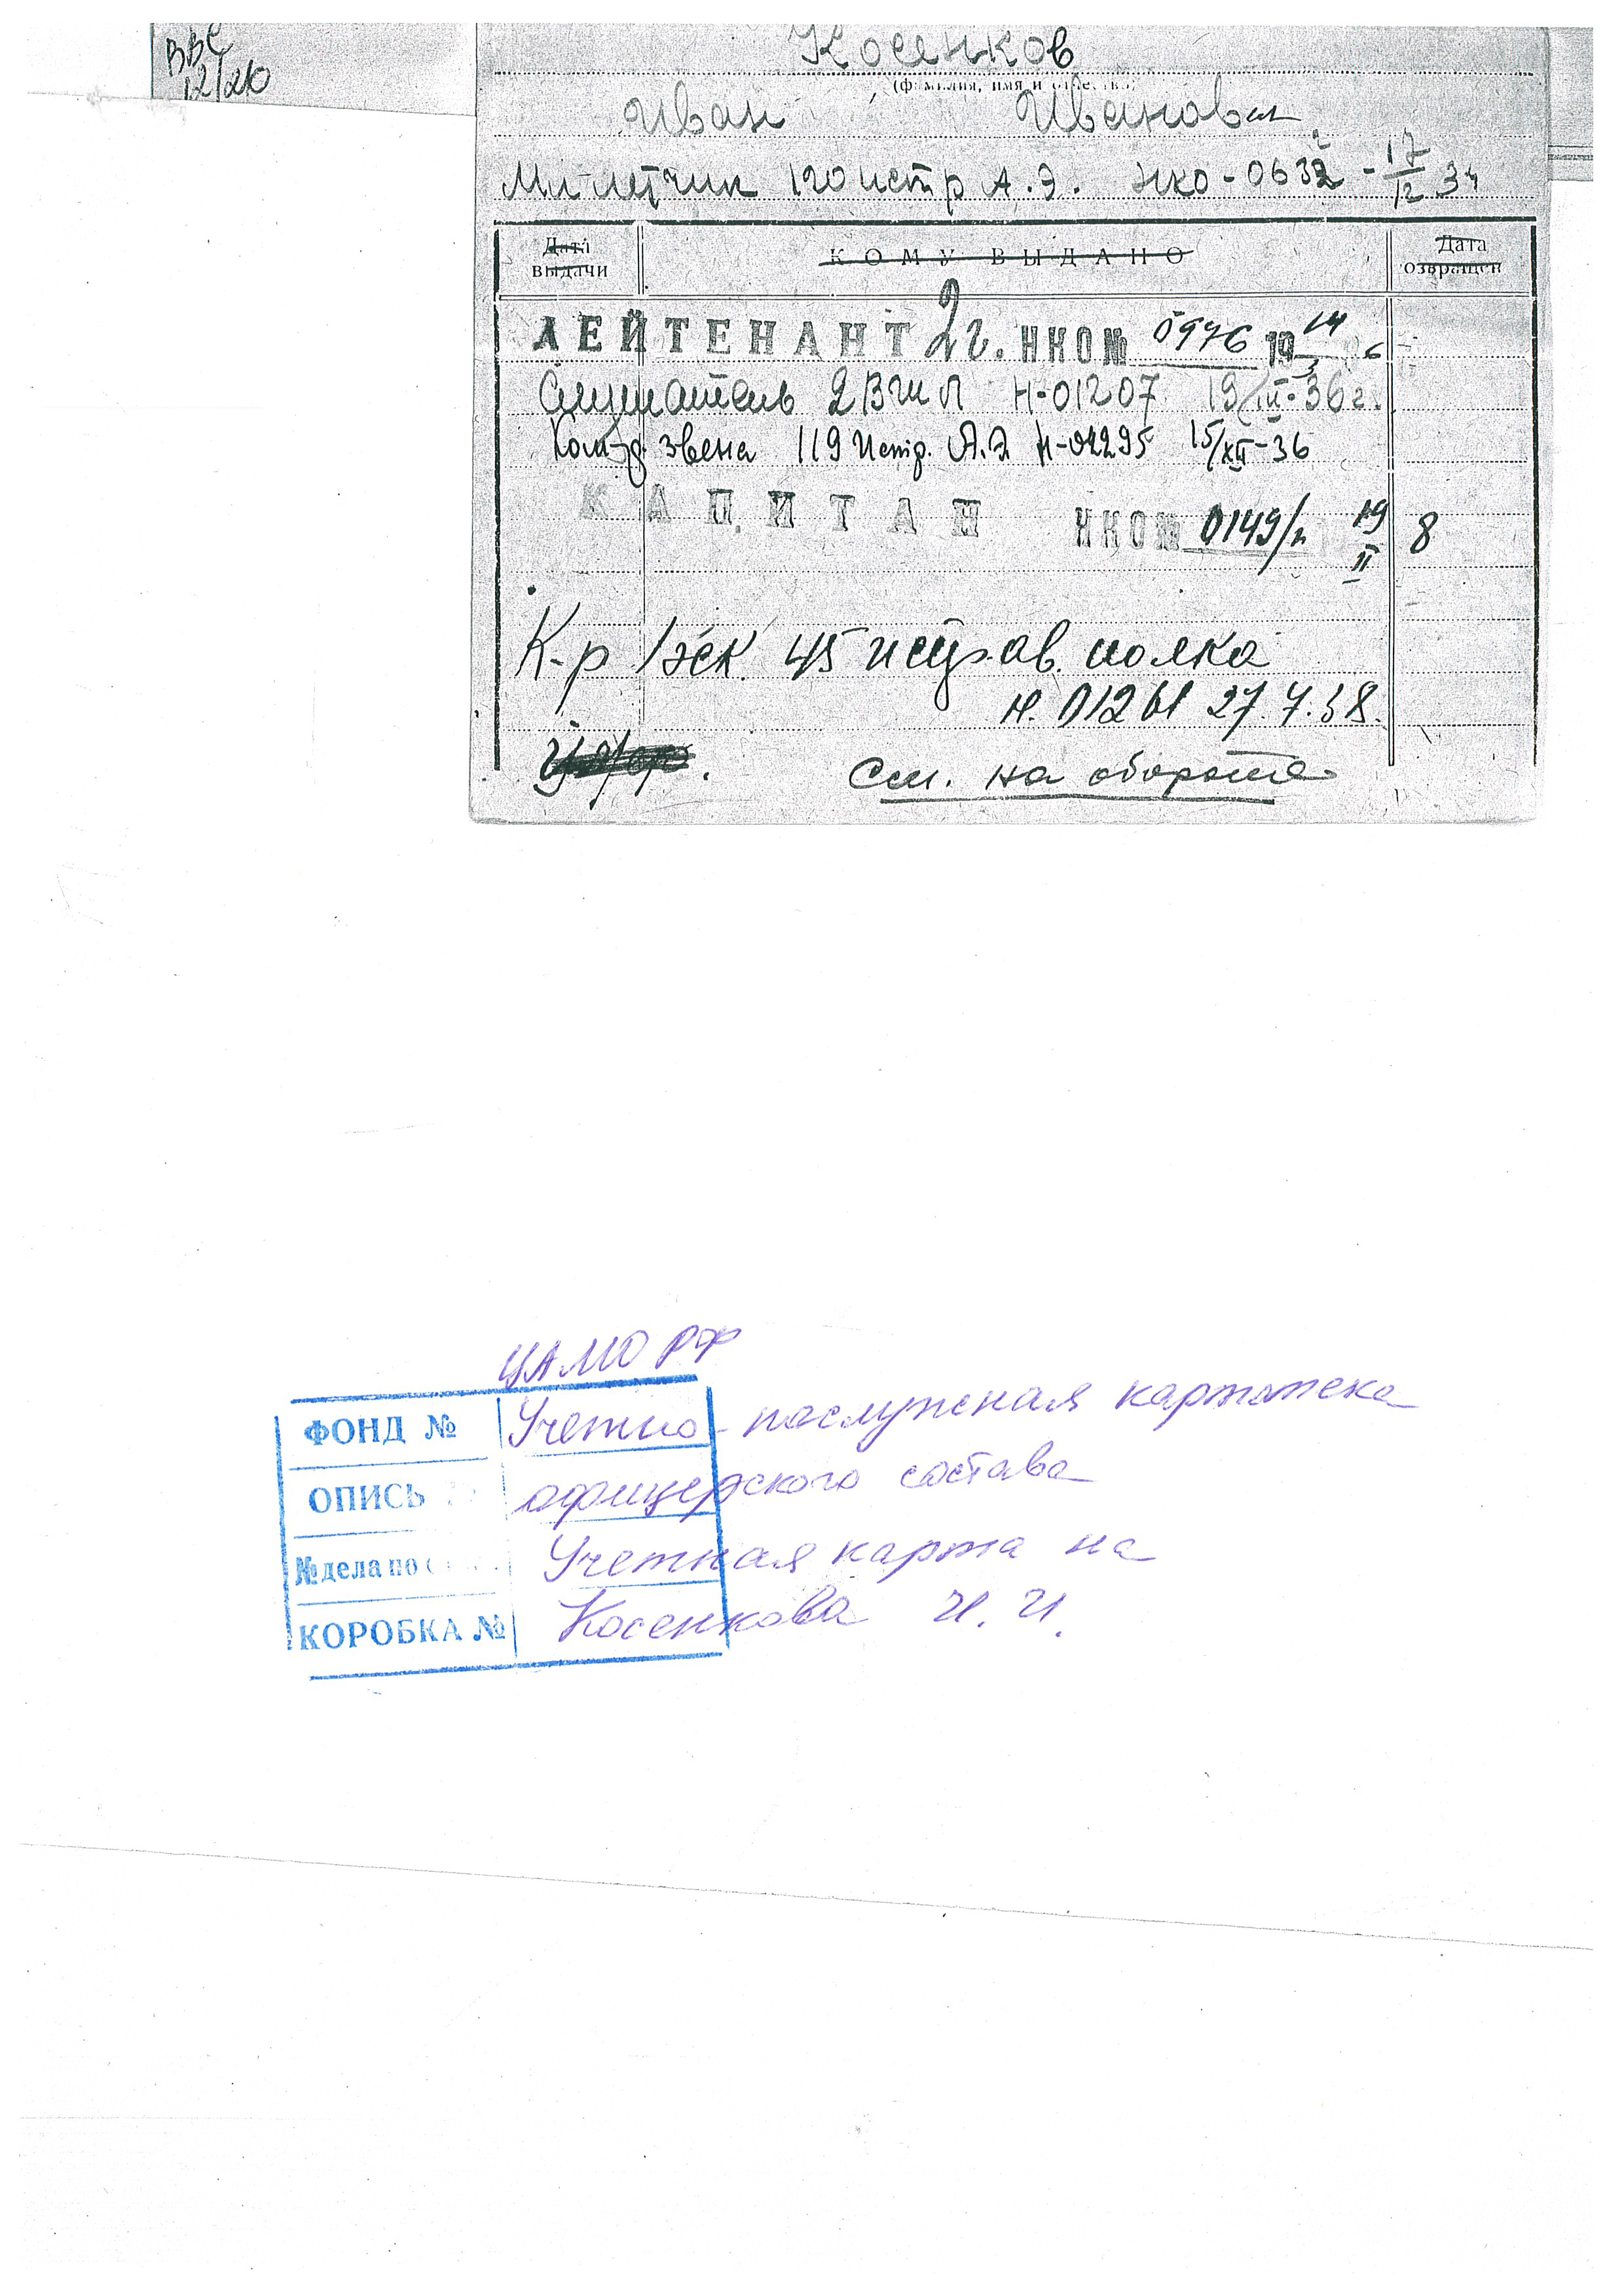 ВВС
12/210
Косенков
(фамилия, имя и отчество)
Иван Иванович
Мл-летчик 120 истр А.Э. НКО-0632 - 17/12 34
Дата выдачи КОМУ ВЫДАНО Дата возвращен
ЛЕЙТЕНАНТ 2г. НКО № 0976 19 14/3 6
Слушатель 2ВШЛ Н-01207 19/III-36г.
Ком-р звена 119 Истр. А.Э Н-04295 15/XII-36
КАПИТАН НКО № 0149/п 19/II 8
К-р 1 эск. 45 истр. ав. полка
Н. 01261 27.4.38.
См. на обороте
ЦАМО РФ
ФОНД № Учетно-послужная картотека
ОПИСЬ офицерского состава
№ дела по Учетная карта на
КОРОБКА № Косенкова И. И.